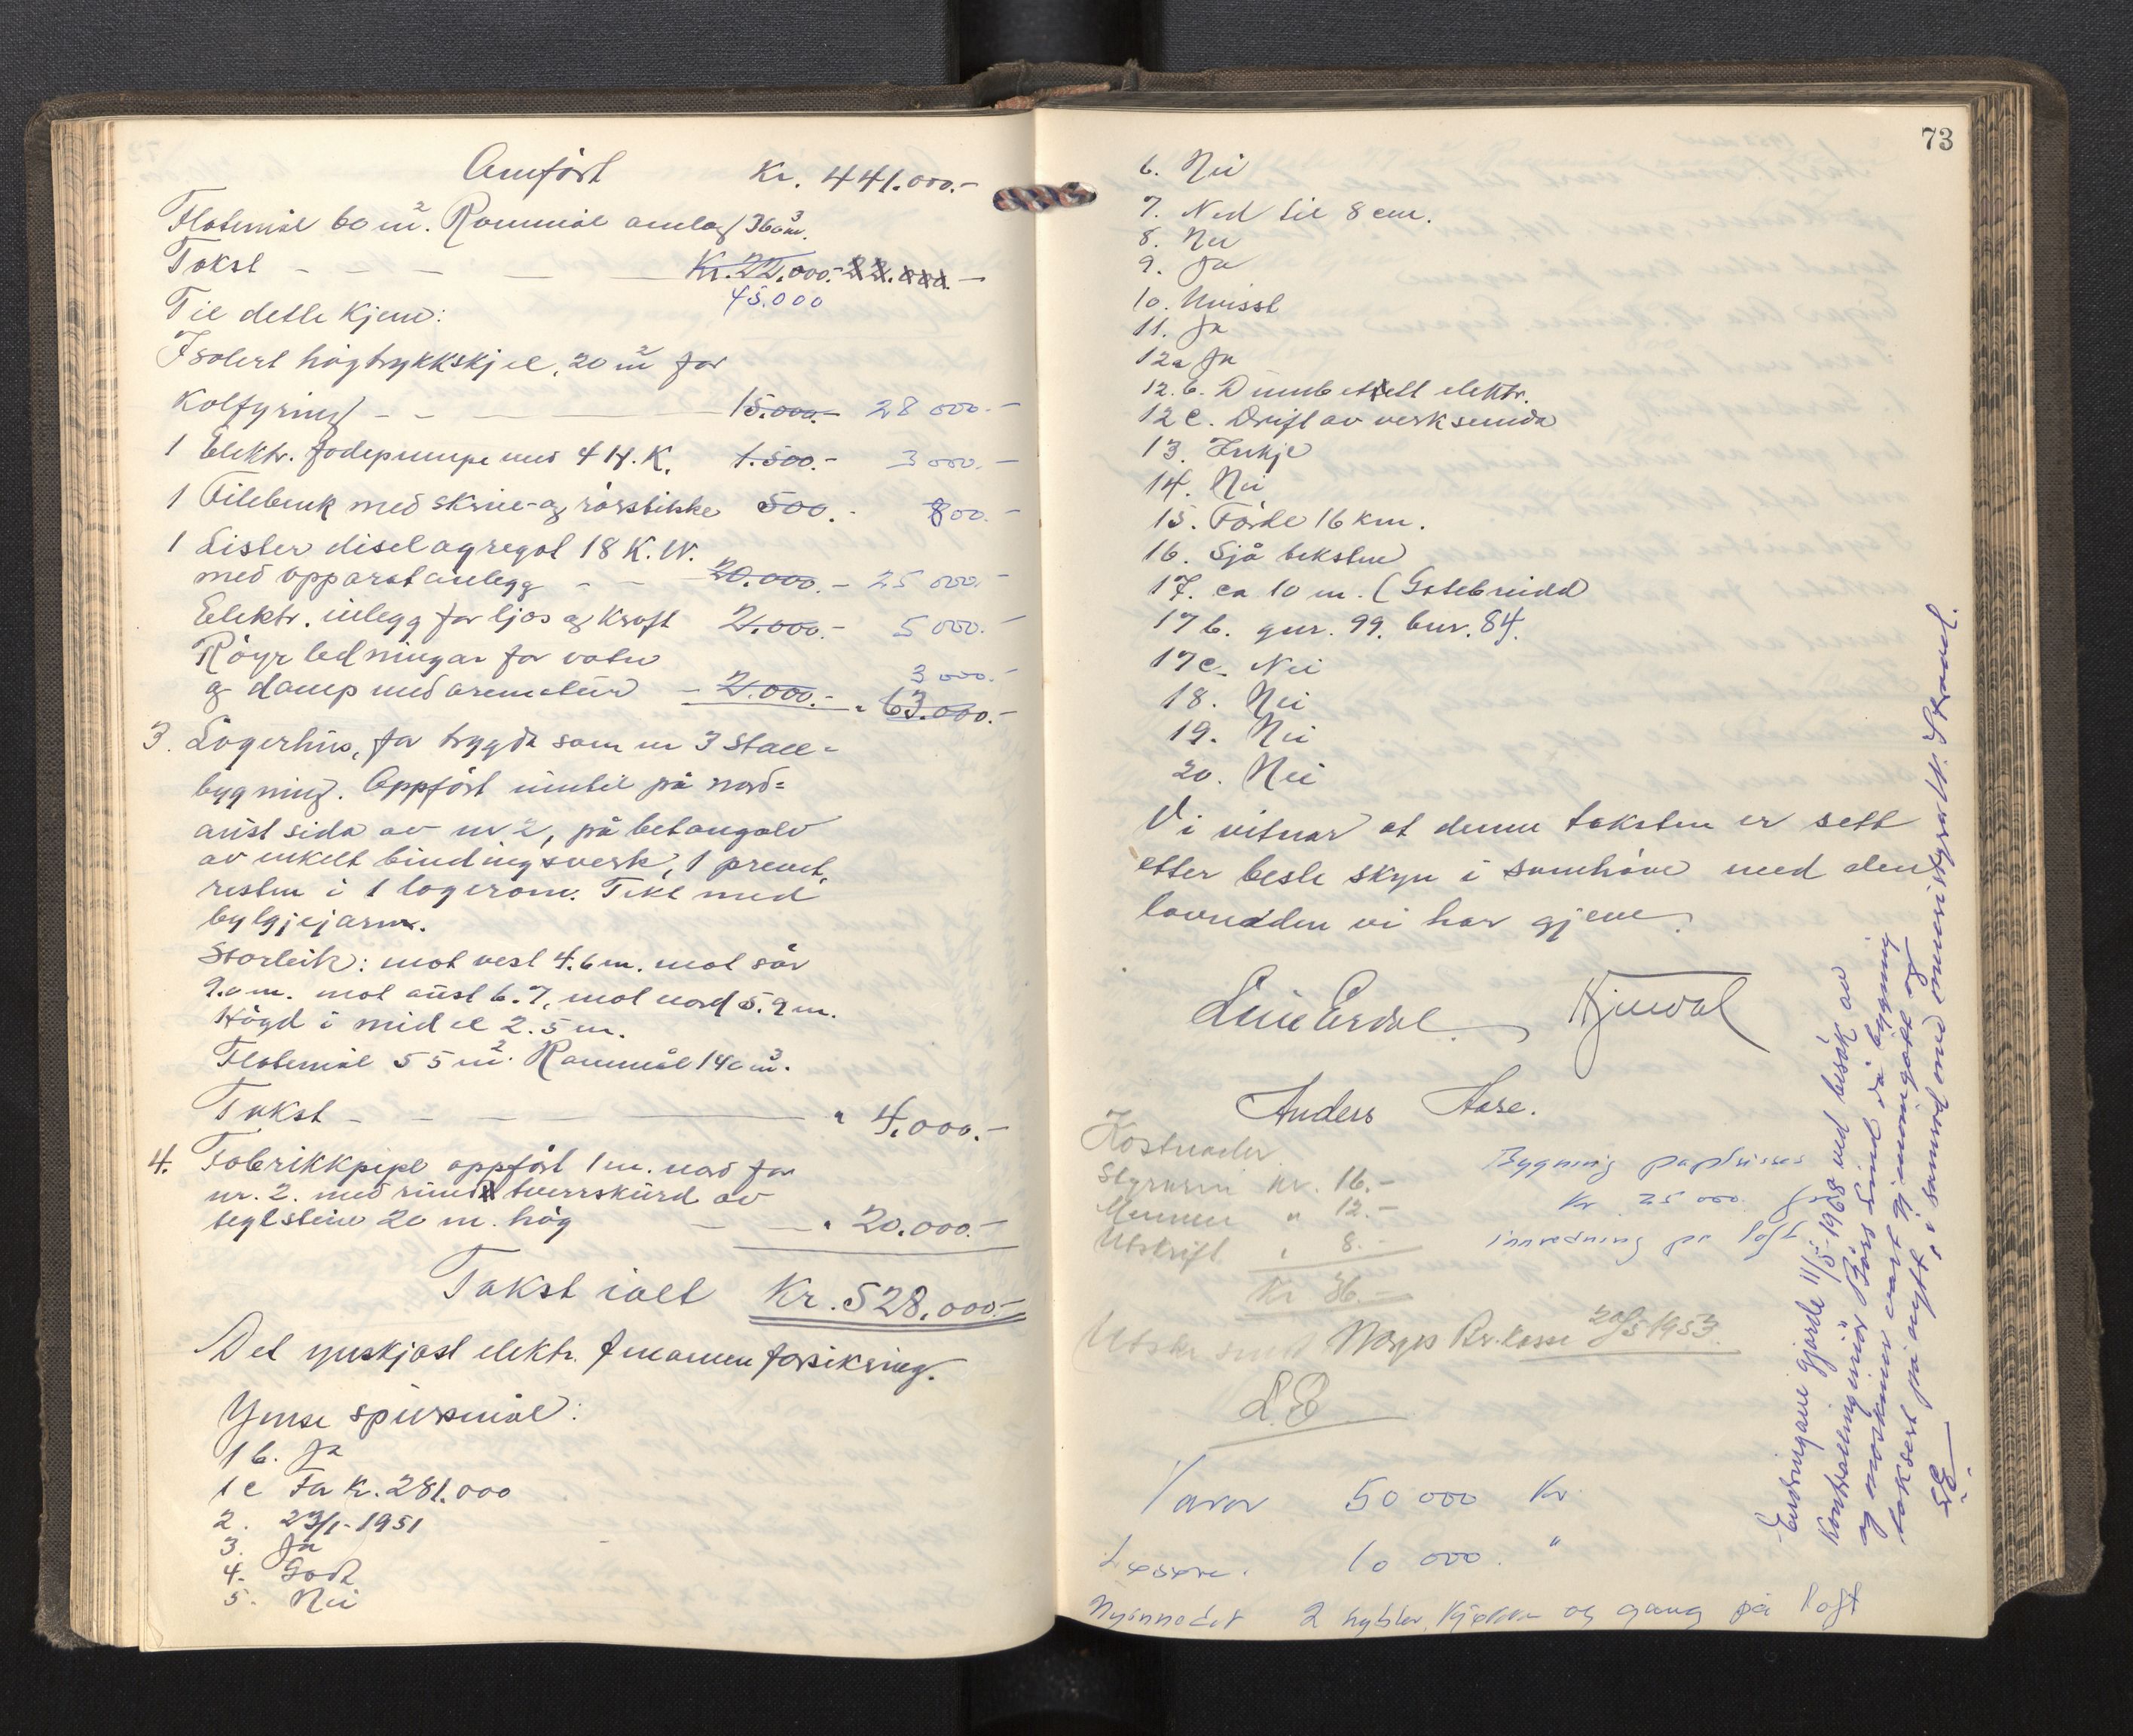 Amført Kr. 441.000.-
Flatemål 60 m². Rommål omlag 360 m³.
Takst - - - Kr. 22.000.- 22.000.-
45.000
Til dette kjem:
Isolert högtrykkskjel, 20 m² for
Kolfyring - - 15.000.- 28 000.-
1 Elektr. fødepumpe med 4 H.K. 1.500.- 3 000.-
1 Filebenk med skrue- og rörstikke 500.- 800.-
1 Lister diselagregat 18 K.W.
med apparatanlegg - - 20.000.- 25 000.-
Elektr. inlegg for ljos og kraft 2.000.- 5 000.-
Röyrledningar for vatn 3 000.-
og damp med armatur - 2.000.- " 63.000.-
3. Lagerhus, før bygda som ein 3 stall-
bygning. Oppført inntil på nord-
aust sida av nr 2, på betongolv
av enkelt bindingsverk, 1 
resten i 1 lagerom. Tekt med
bylgjejarn.
Storleik: mot vest 4.6 m. mot sör
9.0 m. mot aust 6.7, mot nord 5.9 m.
Högd i midel 2.5 m.
Flatemål 55 m². Rommål 140 m³.
Takst - - - " 4.000.-
4. Fabrikkpipe oppført 1 m. nord for
nr. 2. med rund tverrskurd av
teglstein 20 m. hög - - " 20.000.-
Takst ialt Kr. 528.000.-
Det ynskjast elektr. fenomen forsikring.
Ymse spursmål:
1 b. Ja
1 c Fa K. 281.000
2. 23/1-1951
3. Ja
4. God
5. Nei
73
6. Nei
7. Ned til 8 cm.
8. Nei
9. Ja
10. Uvisst
11. Ja
12a Ja
12.b. elektr.
12 c. Drift av verksemda
13. Inkje
14. Nei
15. Förde 16 km.
16. Sjå teksten
17. ca 10 m. (Gatebreidd
17 b. gnr. 99. bnr. 84.
17c. Nei
18. Nei
19. Nei
20. Nei
Vi vitnar at denne taksten er sett
etter beste skyn i samhöve med den
lovnaden vi har gjeve.
Anders Aase.
Kostnader
Styraren kr. 16.-
Mennene " 12.-
Utskrift " 8.-
Kr 36.-
Utskr. sendt Norges Br.kasse 20/5 1953.
L E
Bygning 
Kr 25 000. for
innredning på loft
Varer 50 000 Kr
Lausøre. 10 000. "
Nyinnredet 2 hybler, kjøkken og gang på loft
Endringane gjorde 11/5-1968 ved besök av
Kontrollingeniör sind då bygning
og maskiner vart gjennomgått og
taksert på nytt, i samråd med
LE